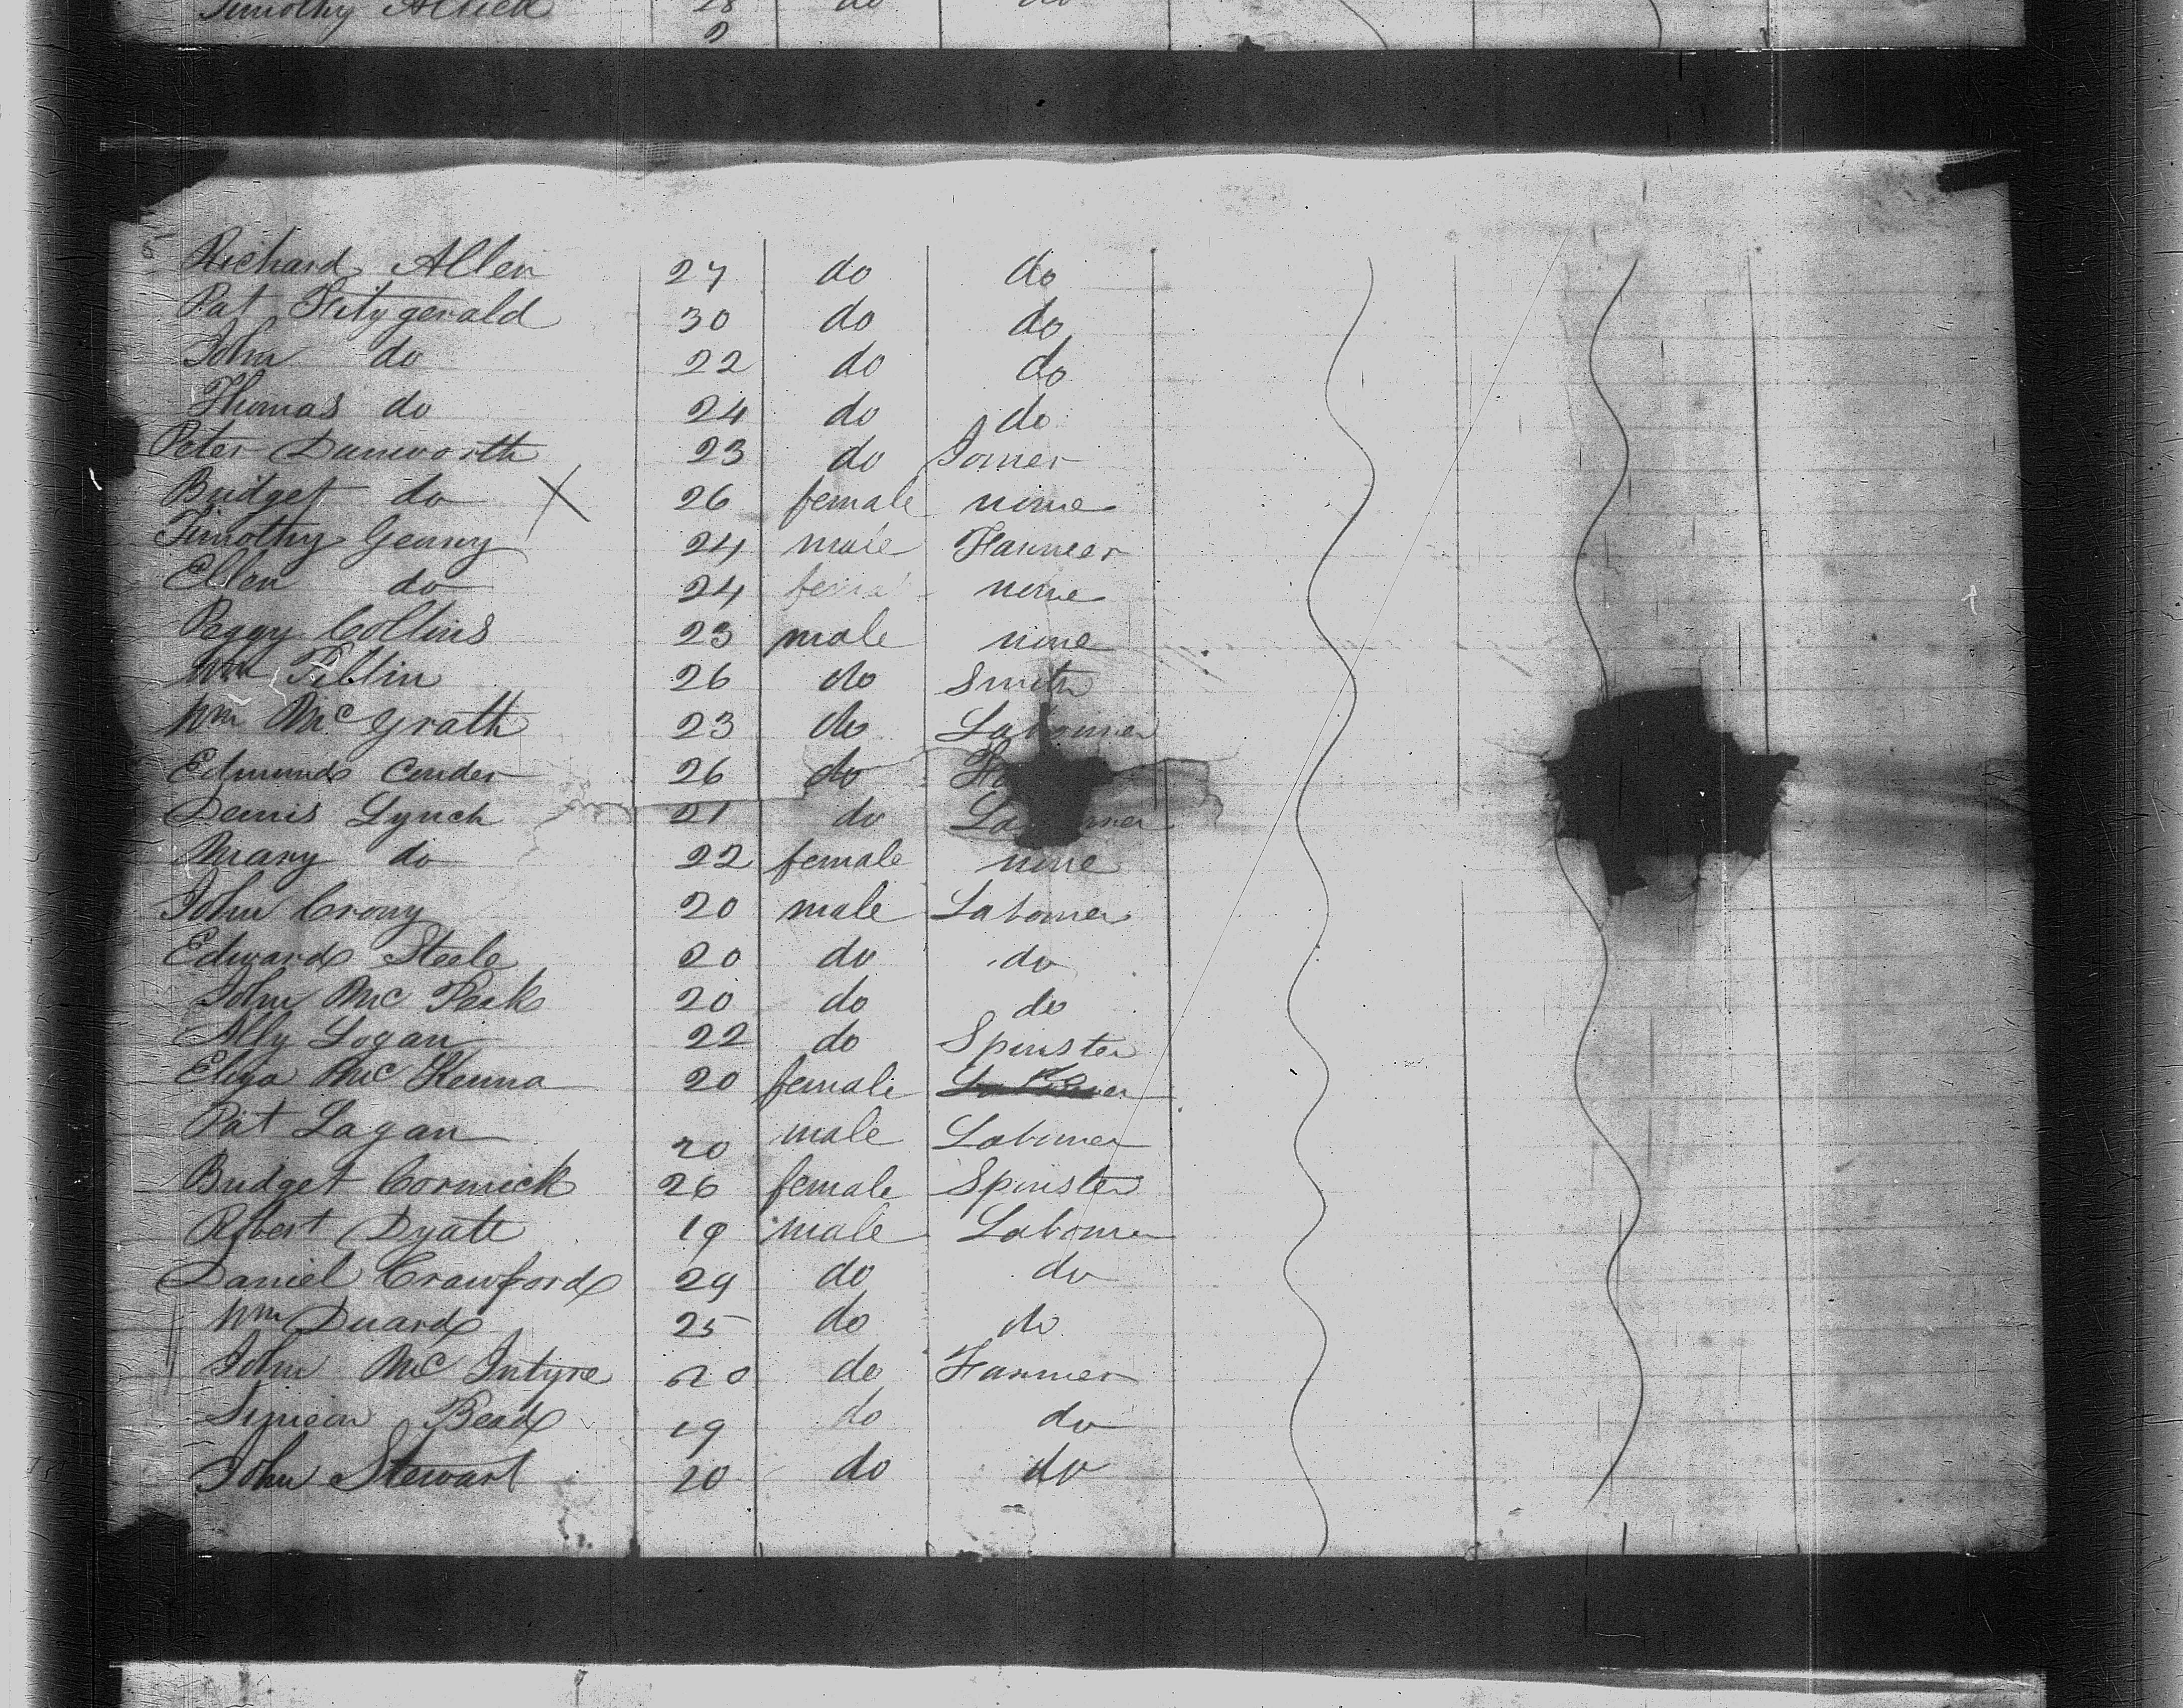 Timothy Allied 28 do do
Richard Allen 27 do do
Pat Fitzgerald 30 do do
John do 22 do do
Thomas do 24 do do
Peter Dunworth 23 do Joiner
Bridget do X 26 female none
Timothy Geany 24 male Farmer
Ellen do 24 none
Peggy Collins 23 male none
Wm Tiblin 26 do Smith
Wm McGrath 23 do Labourer
Edmund Conder 26 do
Dennis Lynch 21 do
Mary do 22 female none
John Crony 20 male Labourer
Edward Steele 20 do do
John Mc Peak 20 do do
Ally Logan 22 do Spinster
Eliza Mc Kenna 20 female
Pat Lagan 20 male Labourer
Bridget Cormick 26 female Spinster
Robert Dyatt 19 male Labourer
Daniel Crawford 29 do do
Wm Duard 25 do do
John Mc Intyre 20 do Farmer
Simeon Bead 19 do do
John Stewart 20 do do